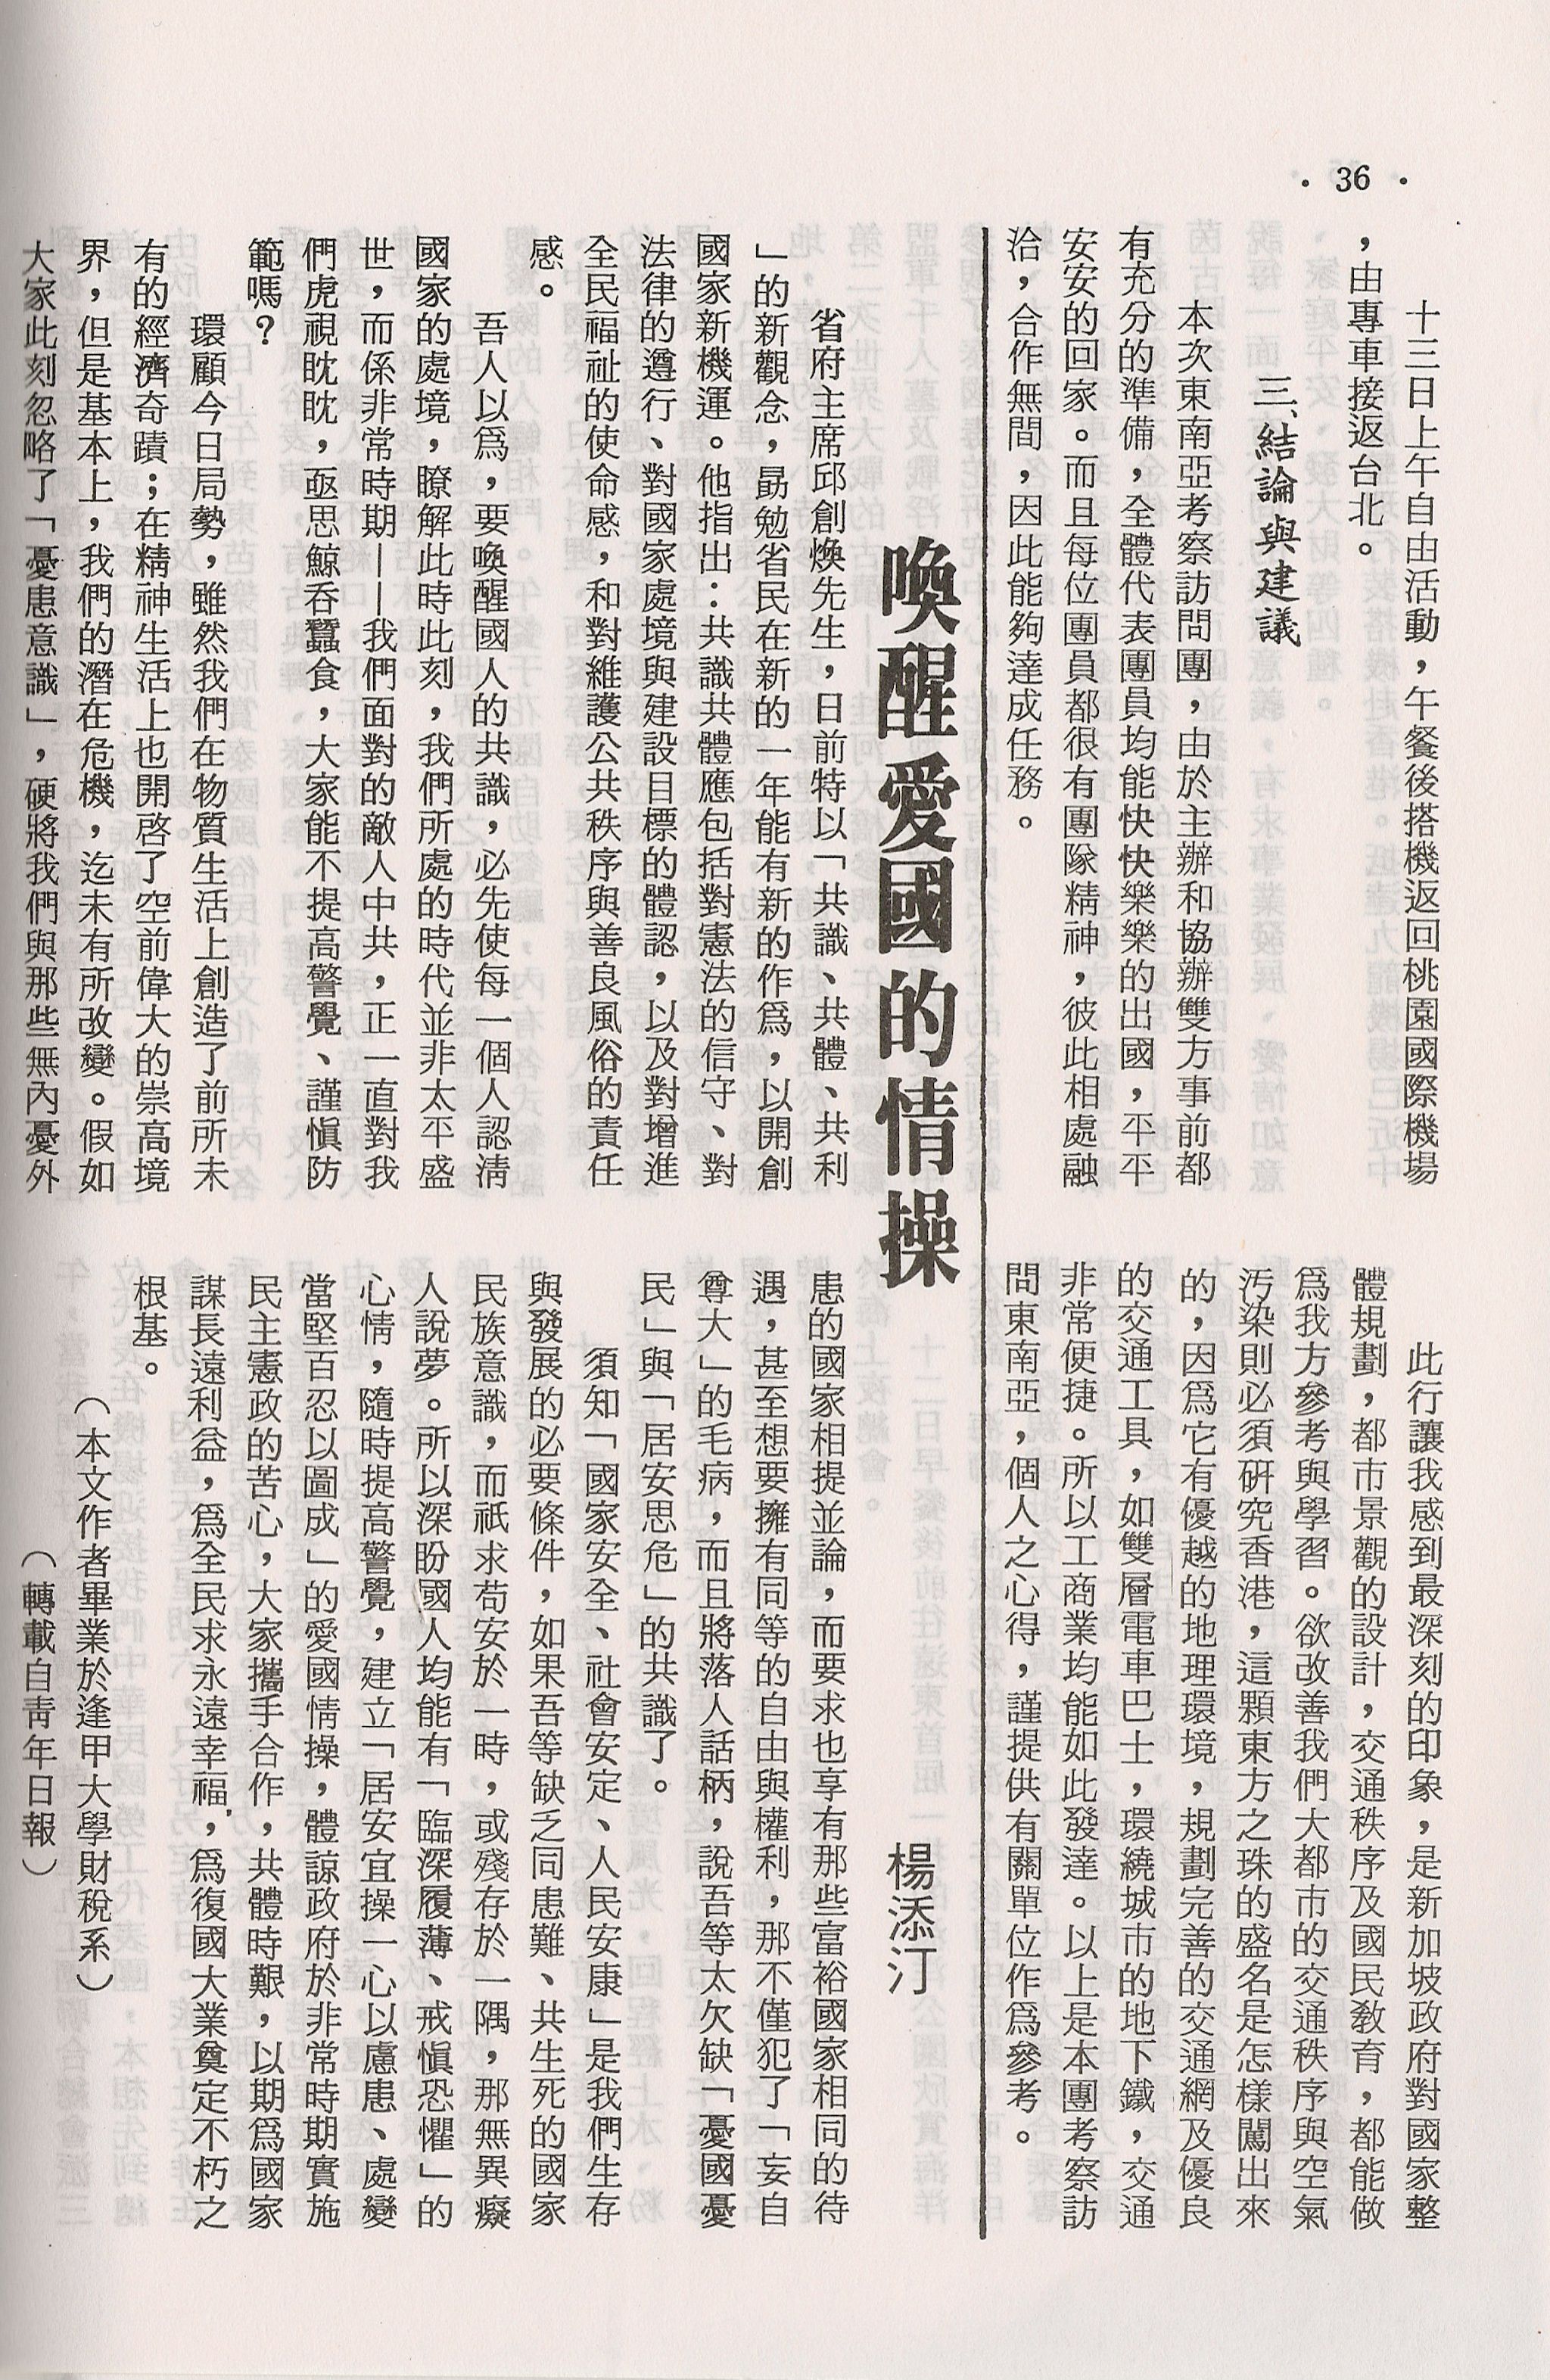 • 36 •
十三日上午自由活動，午餐後搭機返回桃園國際機場
，由專車接返台北。
三、結論與建議
本次東南亞考察訪問團，由於主辦和協辦雙方事前都
有充分的準備，全體代表團員均能快快樂樂的出國，平平
安安的回家。而且每位團員都很有團隊精神，彼此相處融
洽，合作無間，因此能夠達成任務。
此行讓我感到最深刻的印象，是新加坡政府對國家整
體規劃，都市景觀的設計，交通秩序及國民教育，都能做
爲我方參考與學習。欲改善我們大都市的交通秩序與空氣
汚染則必須研究香港，這顆東方之珠的盛名是怎樣闖出來
的，因爲它有優越的地理環境，規劃完善的交通網及優良
的交通工具，如雙層電車巴士，環繞城市的地下鐵，交通
非常便捷。所以工商業均能如此發達。以上是本團考察訪
問東南亞，個人之心得，謹提供有關單位作爲參考。
喚醒愛國的情操
楊添汀
省府主席邱創煥先生，日前特以「共識、共體、共利
」的新觀念，勗勉省民在新的一年能有新的作爲，以開創
國家新機運。他指出：共識共體應包括對憲法的信守、對
法律的遵行、對國家處境與建設目標的體認，以及對增進
全民福祉的使命感，和對維護公共秩序與善良風俗的責任
感。
吾人以爲，要喚醒國人的共識，必先使每一個人認清
國家的處境，瞭解此時此刻，我們所處的時代並非太平盛
世，而係非常時期——我們面對的敵人中共，正一直對我
們虎視眈眈，亟思鯨吞蠶食，大家能不提高警覺、謹愼防
範嗎？
環顧今日局勢，雖然我們在物質生活上創造了前所未
有的經濟奇蹟；在精神生活上也開啓了空前偉大的崇高境
界，但是基本上，我們的潛在危機，迄未有所改變。假如
大家此刻忽略了「憂患意識」，硬將我們與那些無內憂外
患的國家相提並論，而要求也享有那些富裕國家相同的待
遇，甚至想要擁有同等的自由與權利，那不僅犯了「妄自
尊大」的毛病，而且將落人話柄，說吾等太欠缺「憂國憂
民」與「居安思危」的共識了。
須知「國家安全、社會安定、人民安康」是我們生存
與發展的必要條件，如果吾等缺乏同患難、共生死的國家
民族意識，而祇求苟安於一時，或殘存於一隅，那無異癡
人說夢。所以深盼國人均能有「臨深履薄、戒愼恐懼」的
心情，隨時提高警覺，建立「居安宜操一心以慮患、處變
當堅百忍以圖成」的愛國情操，體諒政府於非常時期實施
民主憲政的苦心，大家攜手合作，共體時艱，以期爲國家
謀長遠利益，爲全民求永遠幸福，爲復國大業奠定不朽之
根基。
（本文作者畢業於逢甲大學財稅系）
（轉載自靑年日報）